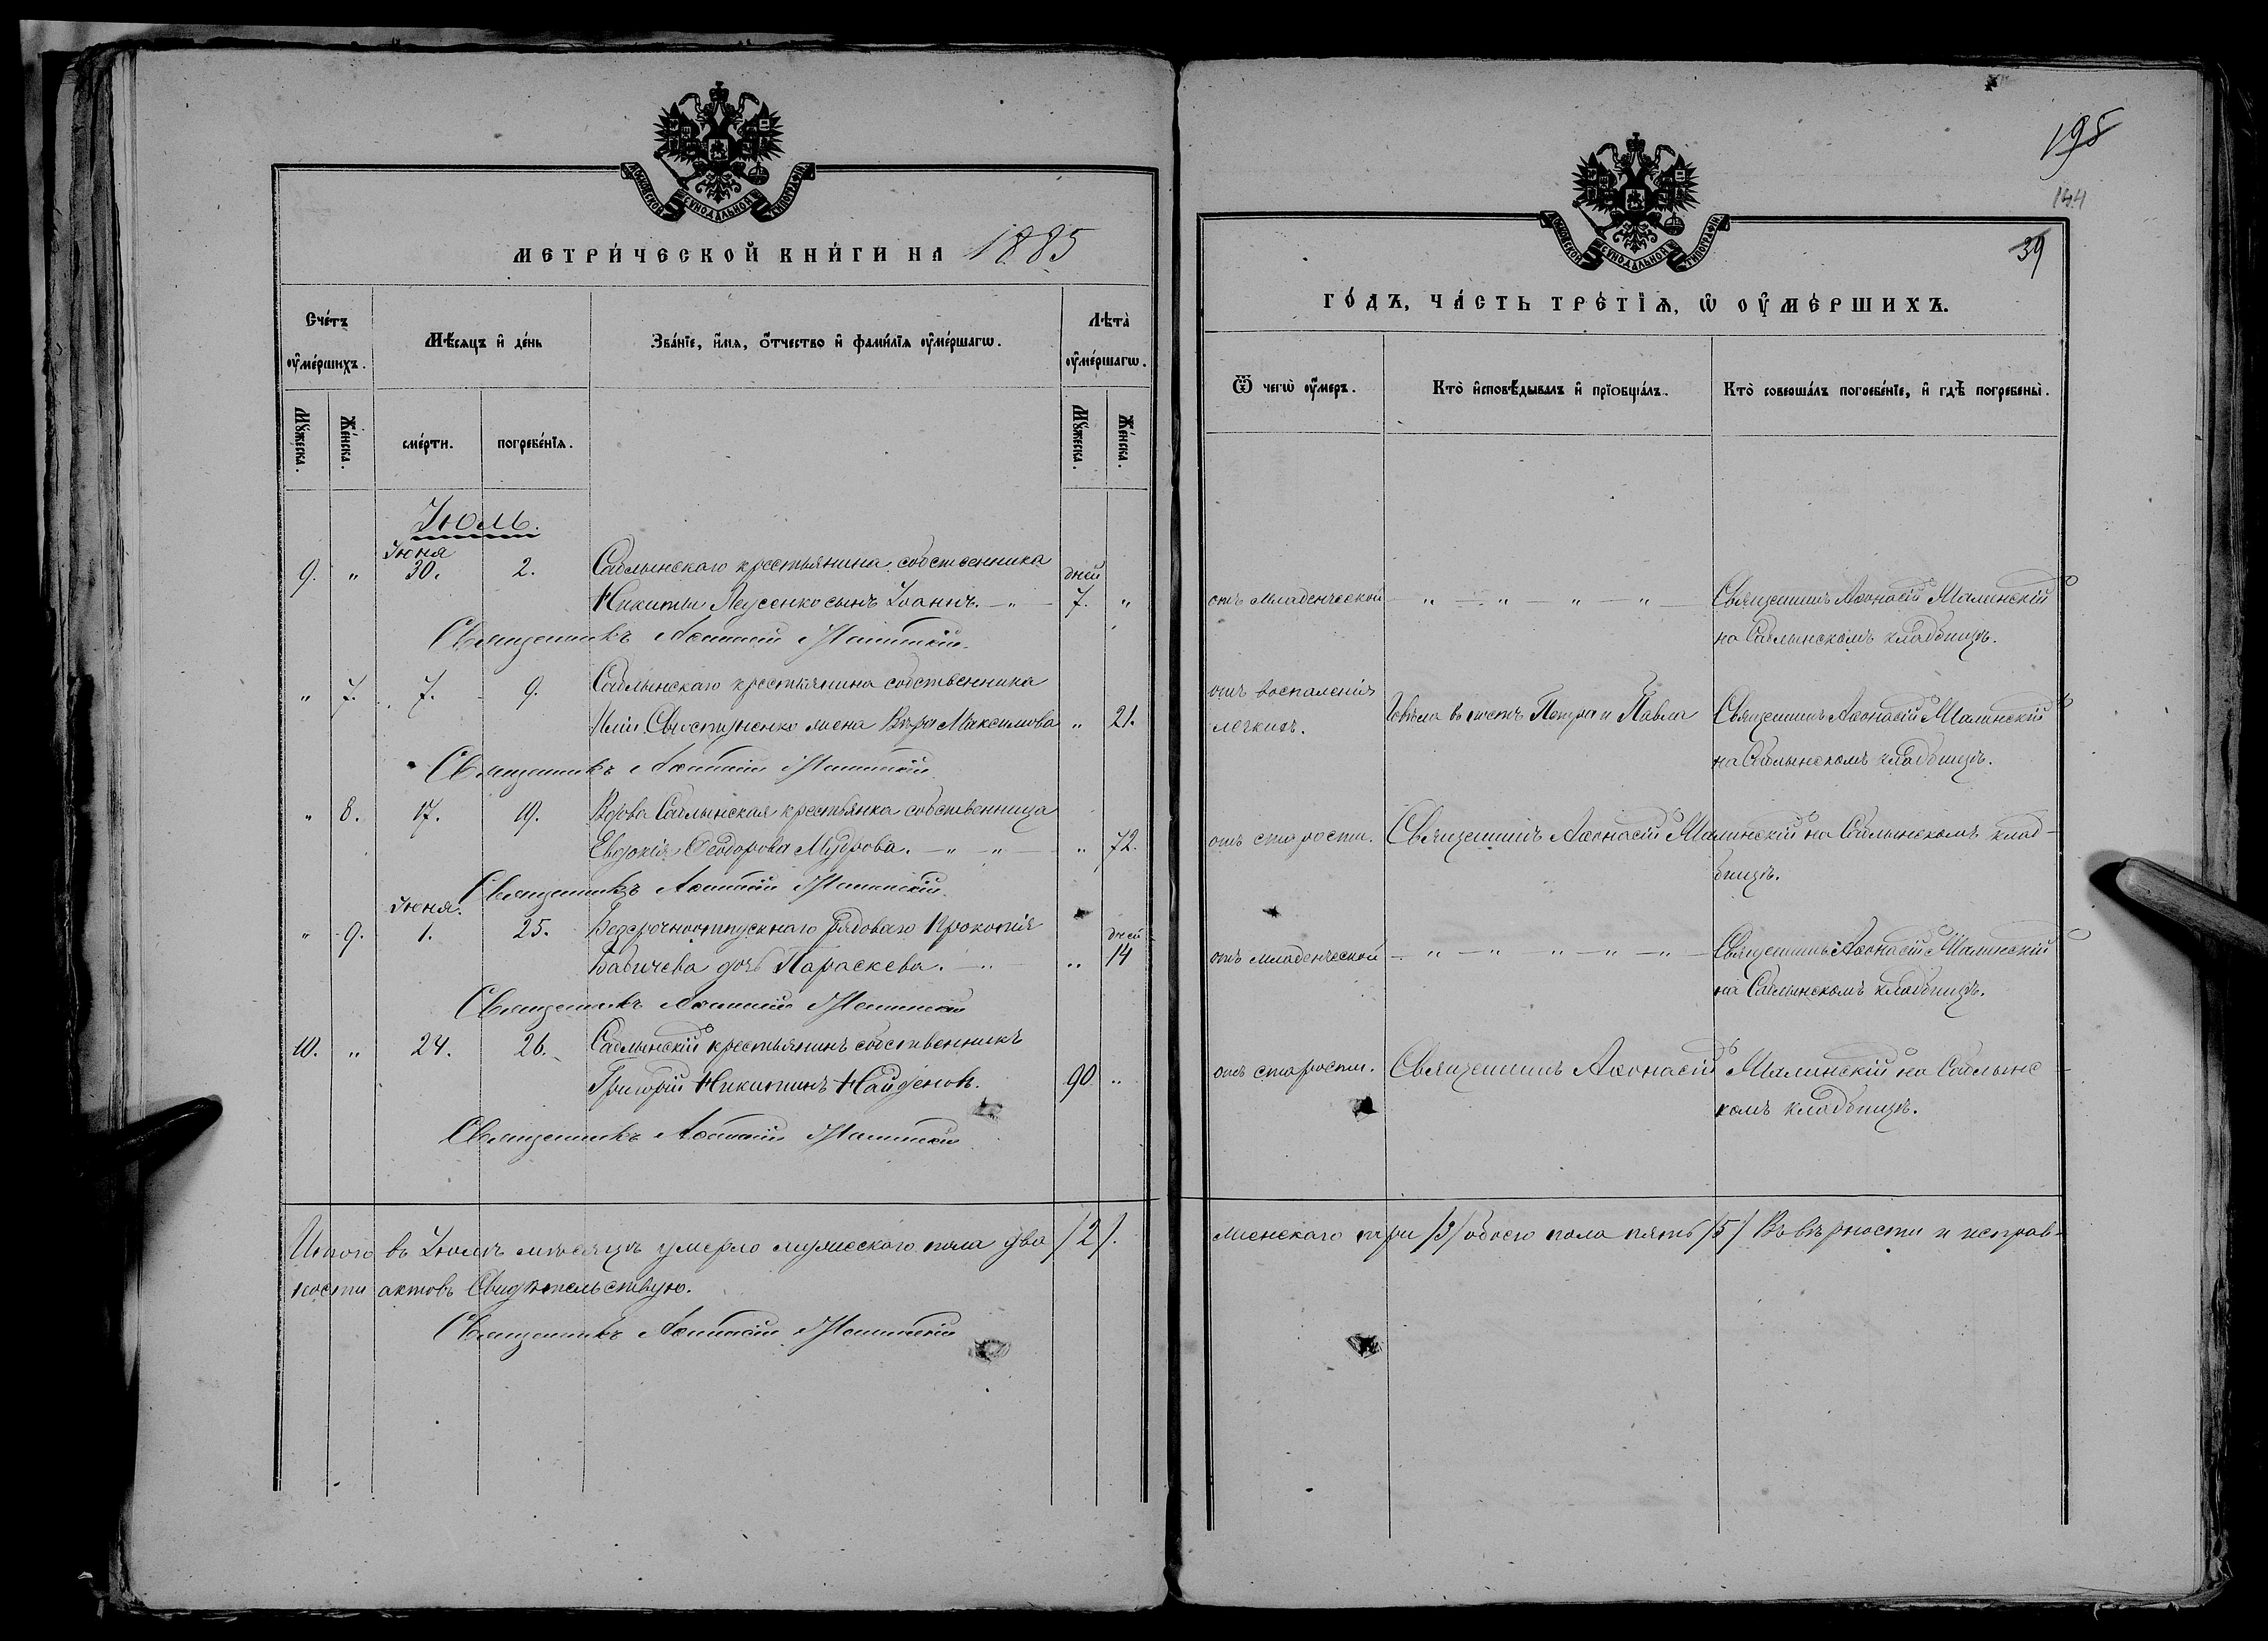 МОСКОВСКОЙ СУНОДАЛЬНОЙ ТИПОГРАФІИ
МЕТРИ́ЧЕСКОЙ КНИ́ГИ НА 1885
Сче́тъ ᲂу҆ме́ршихъ.
Мѣ́сяцъ и҆ де́нь
Зва́нїе, и҆́мѧ, ѻ҆́тчество и҆ фами́лїѧ ᲂу҆ме́ршагѡ.
Лѣ́та ᲂу҆ме́ршагѡ.
Мꙋ́жеска.
Же́нска.
сме́рти.
погребе́нїѧ.
Мꙋ́жеска.
Же́нска.
Іюль.
Іюня
9. " 30. 2. Саблынскаго крестьянина собственника дней
Никиты Леусенко сынъ Іоаннъ. — " — 7. "
Священникъ Аѳанасій Малинскій
" 7. 7. 9. Саблынскаго крестьянина собственника
Иліи Свистуненко жена Вѣра Максимова " 21.
Священникъ Аѳанасій Малинскій
" 8. 17. 19. Вдова Саблынская крестьянка собственница
Евдокія Ѳеодорова Мудрова. — " — " — " 72.
Священникъ Аѳанасій Малинскій
Іюня.
" 9. 1. 25. Безсрочноотпускнаго рядоваго Прокопія дней
Бабичева дочь Параскева. — " — " 14
Священникъ Аѳанасій Малинскій
10. " 24. 26. Саблынскій крестьянинъ собственникъ
Григорій Никитинъ Найденов. 90. "
Священникъ Аѳанасій Малинскій
Итого въ Іюлѣ мѣсяцѣ умерло мужескаго пола два /2/.
ности актовъ Свидѣтельствую.
Священникъ Аѳанасій Малинскій
195
144
39
МОСКОВСКОЙ СУНОДАЛЬНОЙ ТИПОГРАФІИ
ГО́ДЪ, ЧА́СТЬ ТРЕ́ТЇѦ, Ѡ҆ ОУ҆МЕ́РШИХЪ.
Ѿ чегѡ̀ ᲂу҆́меръ.
Кто̀ и҆сповѣ́дывалъ и҆ прїобща́лъ.
Кто̀ соверша́лъ погребе́нїе, и҆ гдѣ̀ погребены̀.
отъ младенческой — " — " — " — " — Священникъ Аѳонасій Малинскій
на Саблынскомъ кладбищѣ.
отъ воспаленія
легкихъ. Говѣла въ постъ Петра и Павла Священникъ Аѳонасій Малинскій
на Саблынскомъ кладбищѣ.
отъ старости. Священникъ Аѳонасій Малинскій на Саблынскомъ клад-
бищѣ.
отъ младенческой — " — " — " — " — " — Священникъ Аѳонасій Малинскій
на Саблынскомъ кладбищѣ.
отъ старости. Священникъ Аѳонасій Малинскій на Саблынс-
комъ кладбищѣ.
женскаго три /3/ обоего пола пять /5/ Въ вѣрности и исправ-